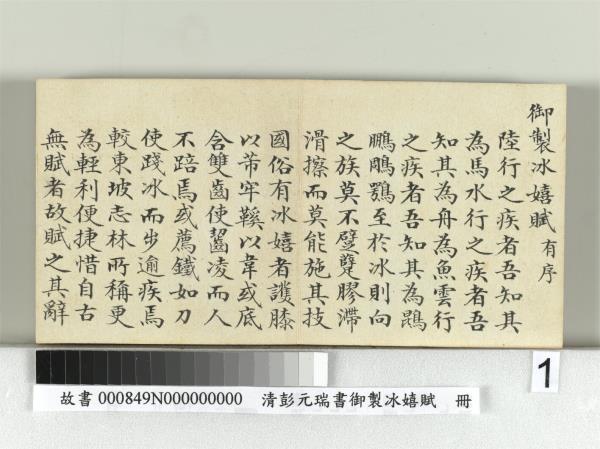 御製冰嬉賦有序
陸行之疾者吾知其
為馬水行之疾者吾
知其為舟為魚雲行
之疾者吾知其為鵾
鵬鵰鶚至於冰則向
之族莫不躄躠膠滯
滑擦而莫能施其技
國俗有冰嬉者護膝
以芾牢鞵以韋或底
含雙齒使齧凌而人
不踣焉或薦鐵如刀
使踐冰而步逾疾焉
較東坡志林所稱更
為輕利便捷惜自古
無賦者故賦之其辭
1
故書 000849N000000000 清彭元瑞書御製冰嬉賦 冊